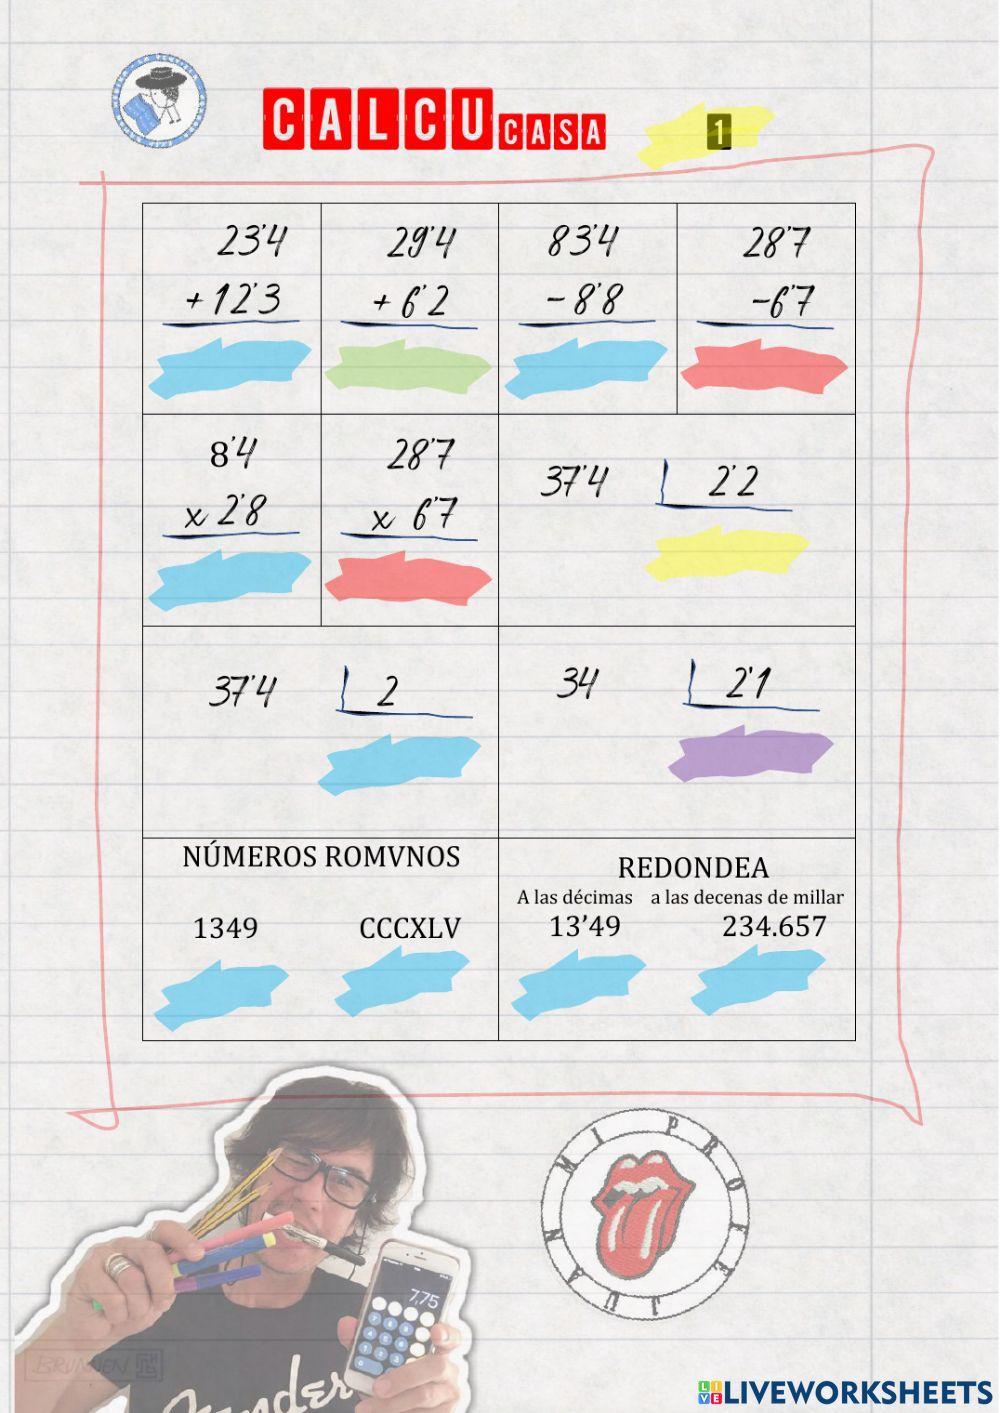 CALCU CASA 1
23'4 29'4 83'4 28'7
+12'3 + 6'2 -8'8 -6'7
8'4 28'7 37'4 2'2
x 2'8 x 6'7
37'4 2 34 2'1
NÚMEROS ROMVNOS REDONDEA
A las décimas a las decenas de millar
1349 CCCXLV 13’49 234.657
MI PROFE JUAN
7,75
BRUNNEN
Fender
LIVE LIVEWORKSHEETS